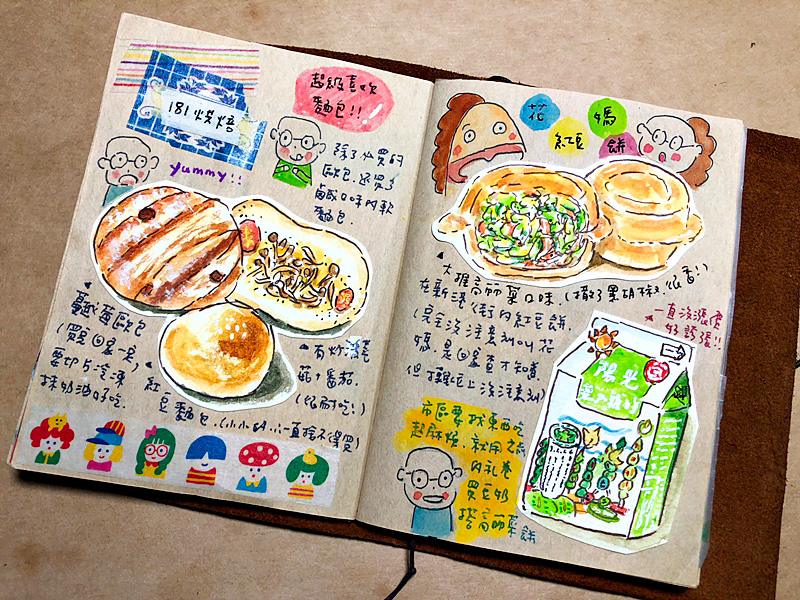 181烘焙
yummy!!
超級喜歡
麵包!!
除了必買的
歐包.還買了
鹹口味的軟
麵包.
蔓越莓歐包
(買回家一定
要切片冷凍
抹奶油好吃.
有炸
菇+番茄.
紅
豆麵包.(小小的.一直捨不得買)
花
媽
紅豆
餅
大推高麗菜口味.(撒了黑胡椒.很香!)
在新港街的紅豆餅.
(完全沒注意到叫花
媽.是回家查才知道.
但攤位上沒注意到)
一直沒漲價
好緊張!!
陽光
市區要找東西吃
超麻煩.就用之前
的禮券
買豆奶
搭高麗菜餅